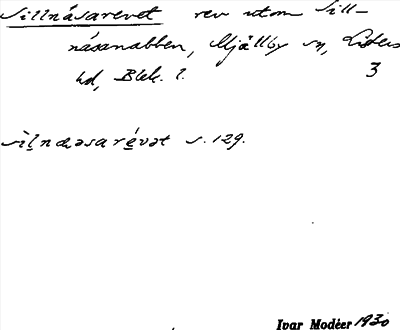 Sillnäsarevet rev utom Sill-
näsanabben, Mjällby sn, Listers
hd, Blek. l. 3
sìl̥næsaré̱vət s. 129.
Ivar Modéer 1930